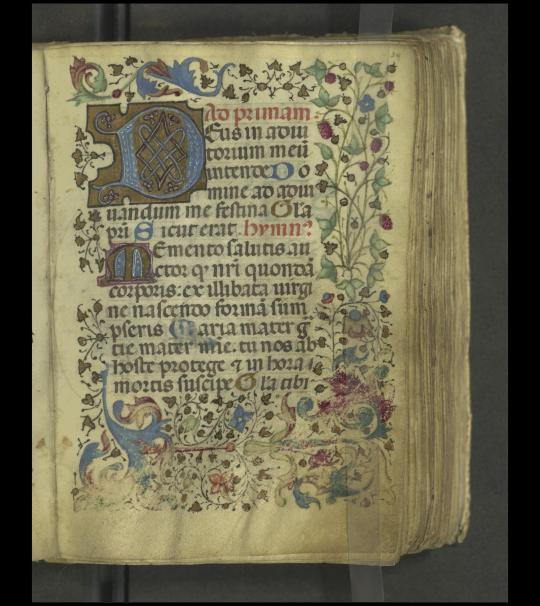 Ad primam.
Deus in adiu
torium meū
intende Do
mine ad adiu
uandum me festina Gla
pri Sicut erat. hymn⁹
Memento salutis au
ctor q nri quondā
corporis: ex illibata uirgi
ne nascendo formā sum
pseris Maria mater g
tie mater mie. tu nos ab
hoste protege ⁊ in hora
mortis suscipe Gla tibi